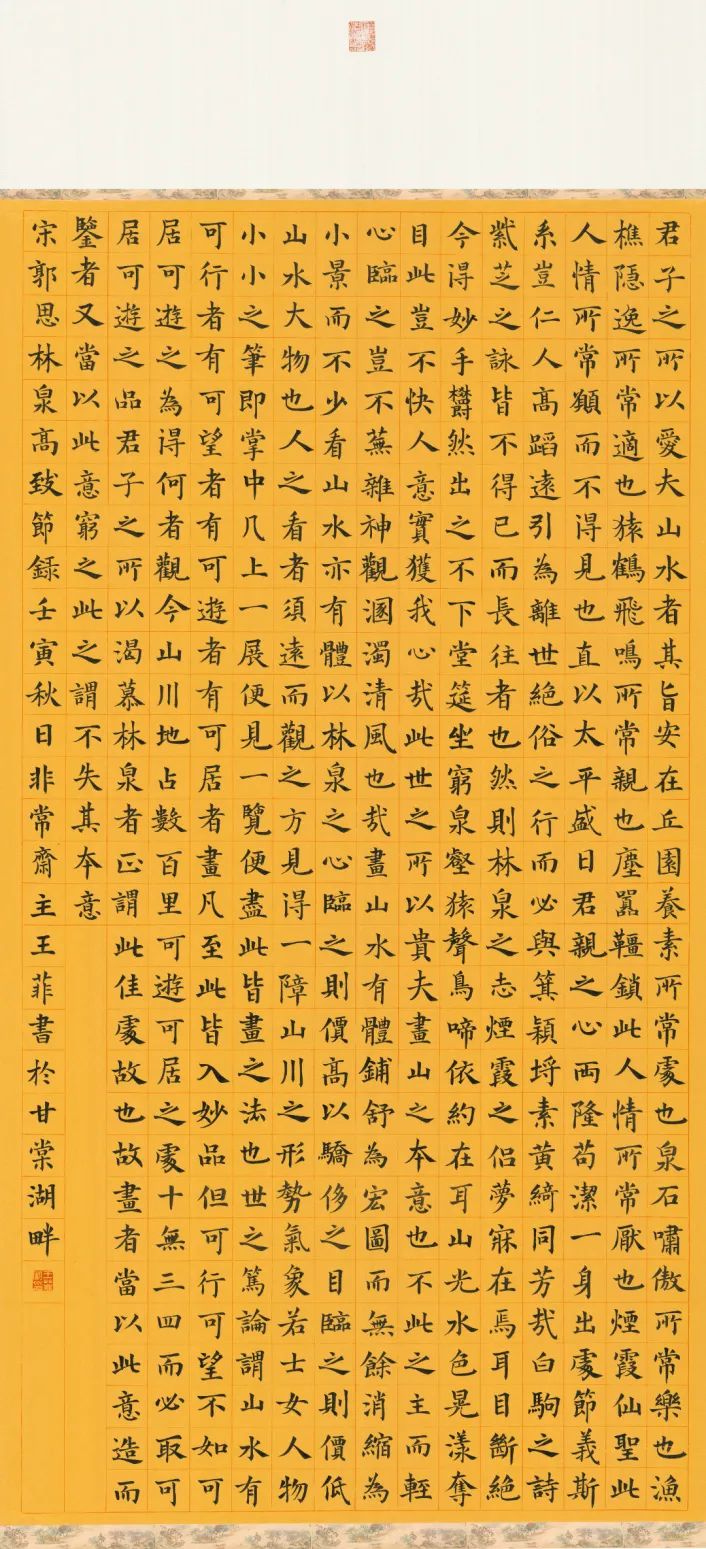 君子之所以愛夫山水者其旨安在丘園養素所常處也泉石嘯傲所常樂也漁
樵隱逸所常適也猿鶴飛鳴所常親也塵囂韁鎖此人情所常厭也煙霞仙聖此
人情所常願而不得見也直以太平盛日君親之心兩隆苟潔一身出處節義斯
系豈仁人高蹈遠引為離世絕俗之行而必與箕穎埒素黃綺同芳哉白駒之詩
紫芝之詠皆不得已而長往者也然則林泉之志煙霞之侶夢寐在焉耳目斷絕
今得妙手欝然出之不下堂筵坐窮泉壑猿聲鳥啼依約在耳山光水色晃漾奪
目此豈不快人意實獲我心哉此世之所以貴夫畫山之本意也不此之主而輕
心臨之豈不蕪雜神觀溷濁清風也哉畫山水有體鋪舒為宏圖而無餘消縮為
小景而不少看山水亦有體以林泉之心臨之則價高以驕侈之目臨之則價低
山水大物也人之看者須遠而觀之方見得一障山川之形勢氣象若士女人物
小小之筆即掌中几上一展便見一覽便盡此皆畫之法也世之篤論謂山水有
可行者有可望者有可遊者有可居者畫凡至此皆入妙品但可行可望不如可
居可遊之為得何者觀今山川地占數百里可遊可居之處十無三四而必取可
居可遊之品君子之所以渴慕林泉者正謂此佳處故也故畫者當以此意造而
鑒者又當以此意窮之此之謂不失其本意
宋郭思林泉高致節錄壬寅秋日非常齋主王菲書於甘棠湖畔